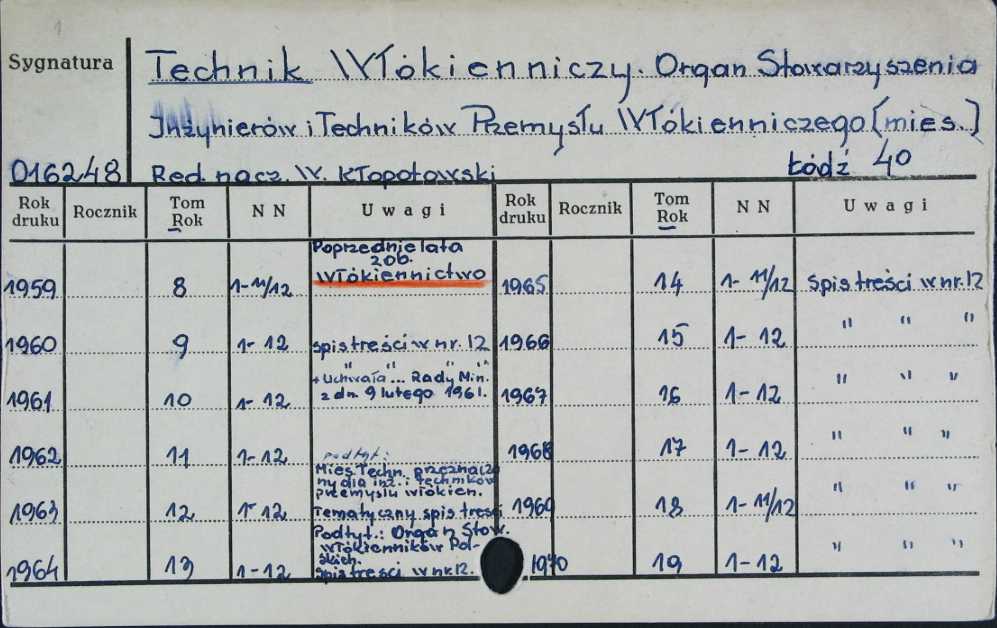 Sygnatura
Technik Włókienniczy. Organ Stowarzyszenia
Inżynierów i Techników Przemysłu Włókienniczego [mies.]
016248 Red. nacz. W. Kłopotowski Łódź 40
Rok druku Rocznik Tom Rok N N Uwagi Rok druku Rocznik Tom Rok N N Uwagi
Poprzednie lata
zob.
Włókiennictwo
1959 8 1-11/12 1965 14 1-11/12 Spis treści w nr. 12
1960 9 1-12 spis treści w nr. 12 1966 15 1-12 " " "
" " " "
+ Uchwała... Rady Min.
z dn. 9 lutego 1961.
1961 10 1-12 1967 16 1-12 " " "
1962 11 1-12 podtyt.: 1968 17 1-12 " " "
Mies. Techn. przeznaczo
ny dla inż. i techników
przemysłu włókien.
1963 12 1-12 Tematyczny spis treści 1969 18 1-11/12 " " "
Podtyt.: Organ Stow.
Włókienników Pol-
skich.
1964 13 1-12 Spis treści w nr 12. 1970 19 1-12 " " "